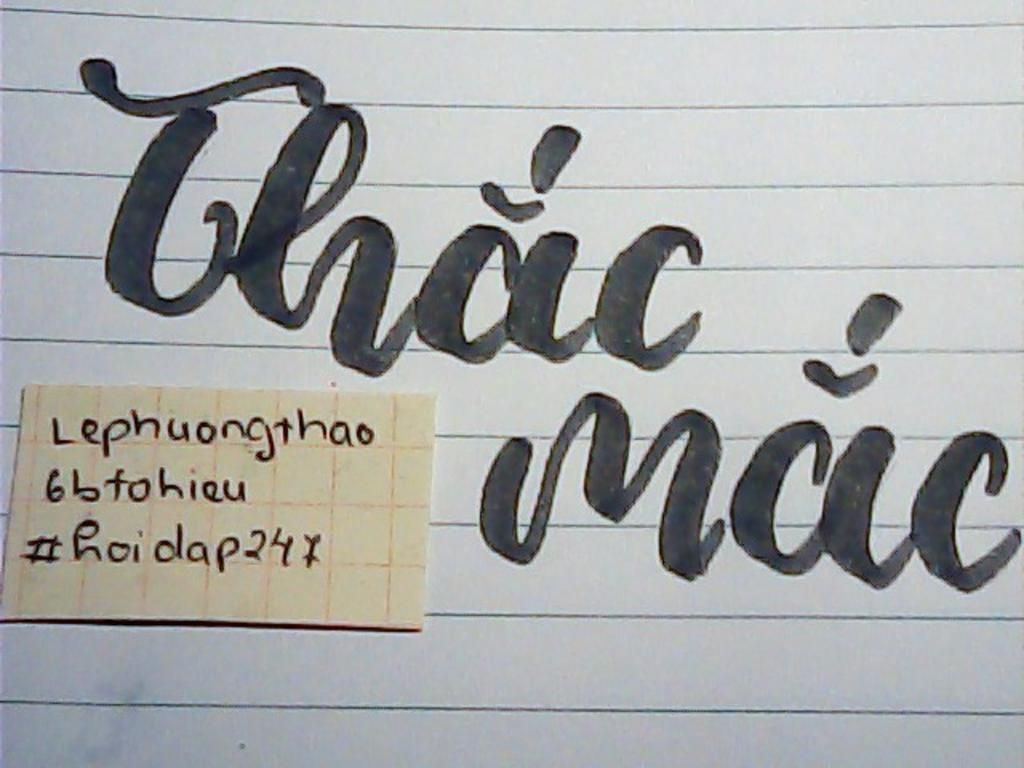 Thắc
mắc
Lephuongthao
6btohieu
#hoidap247